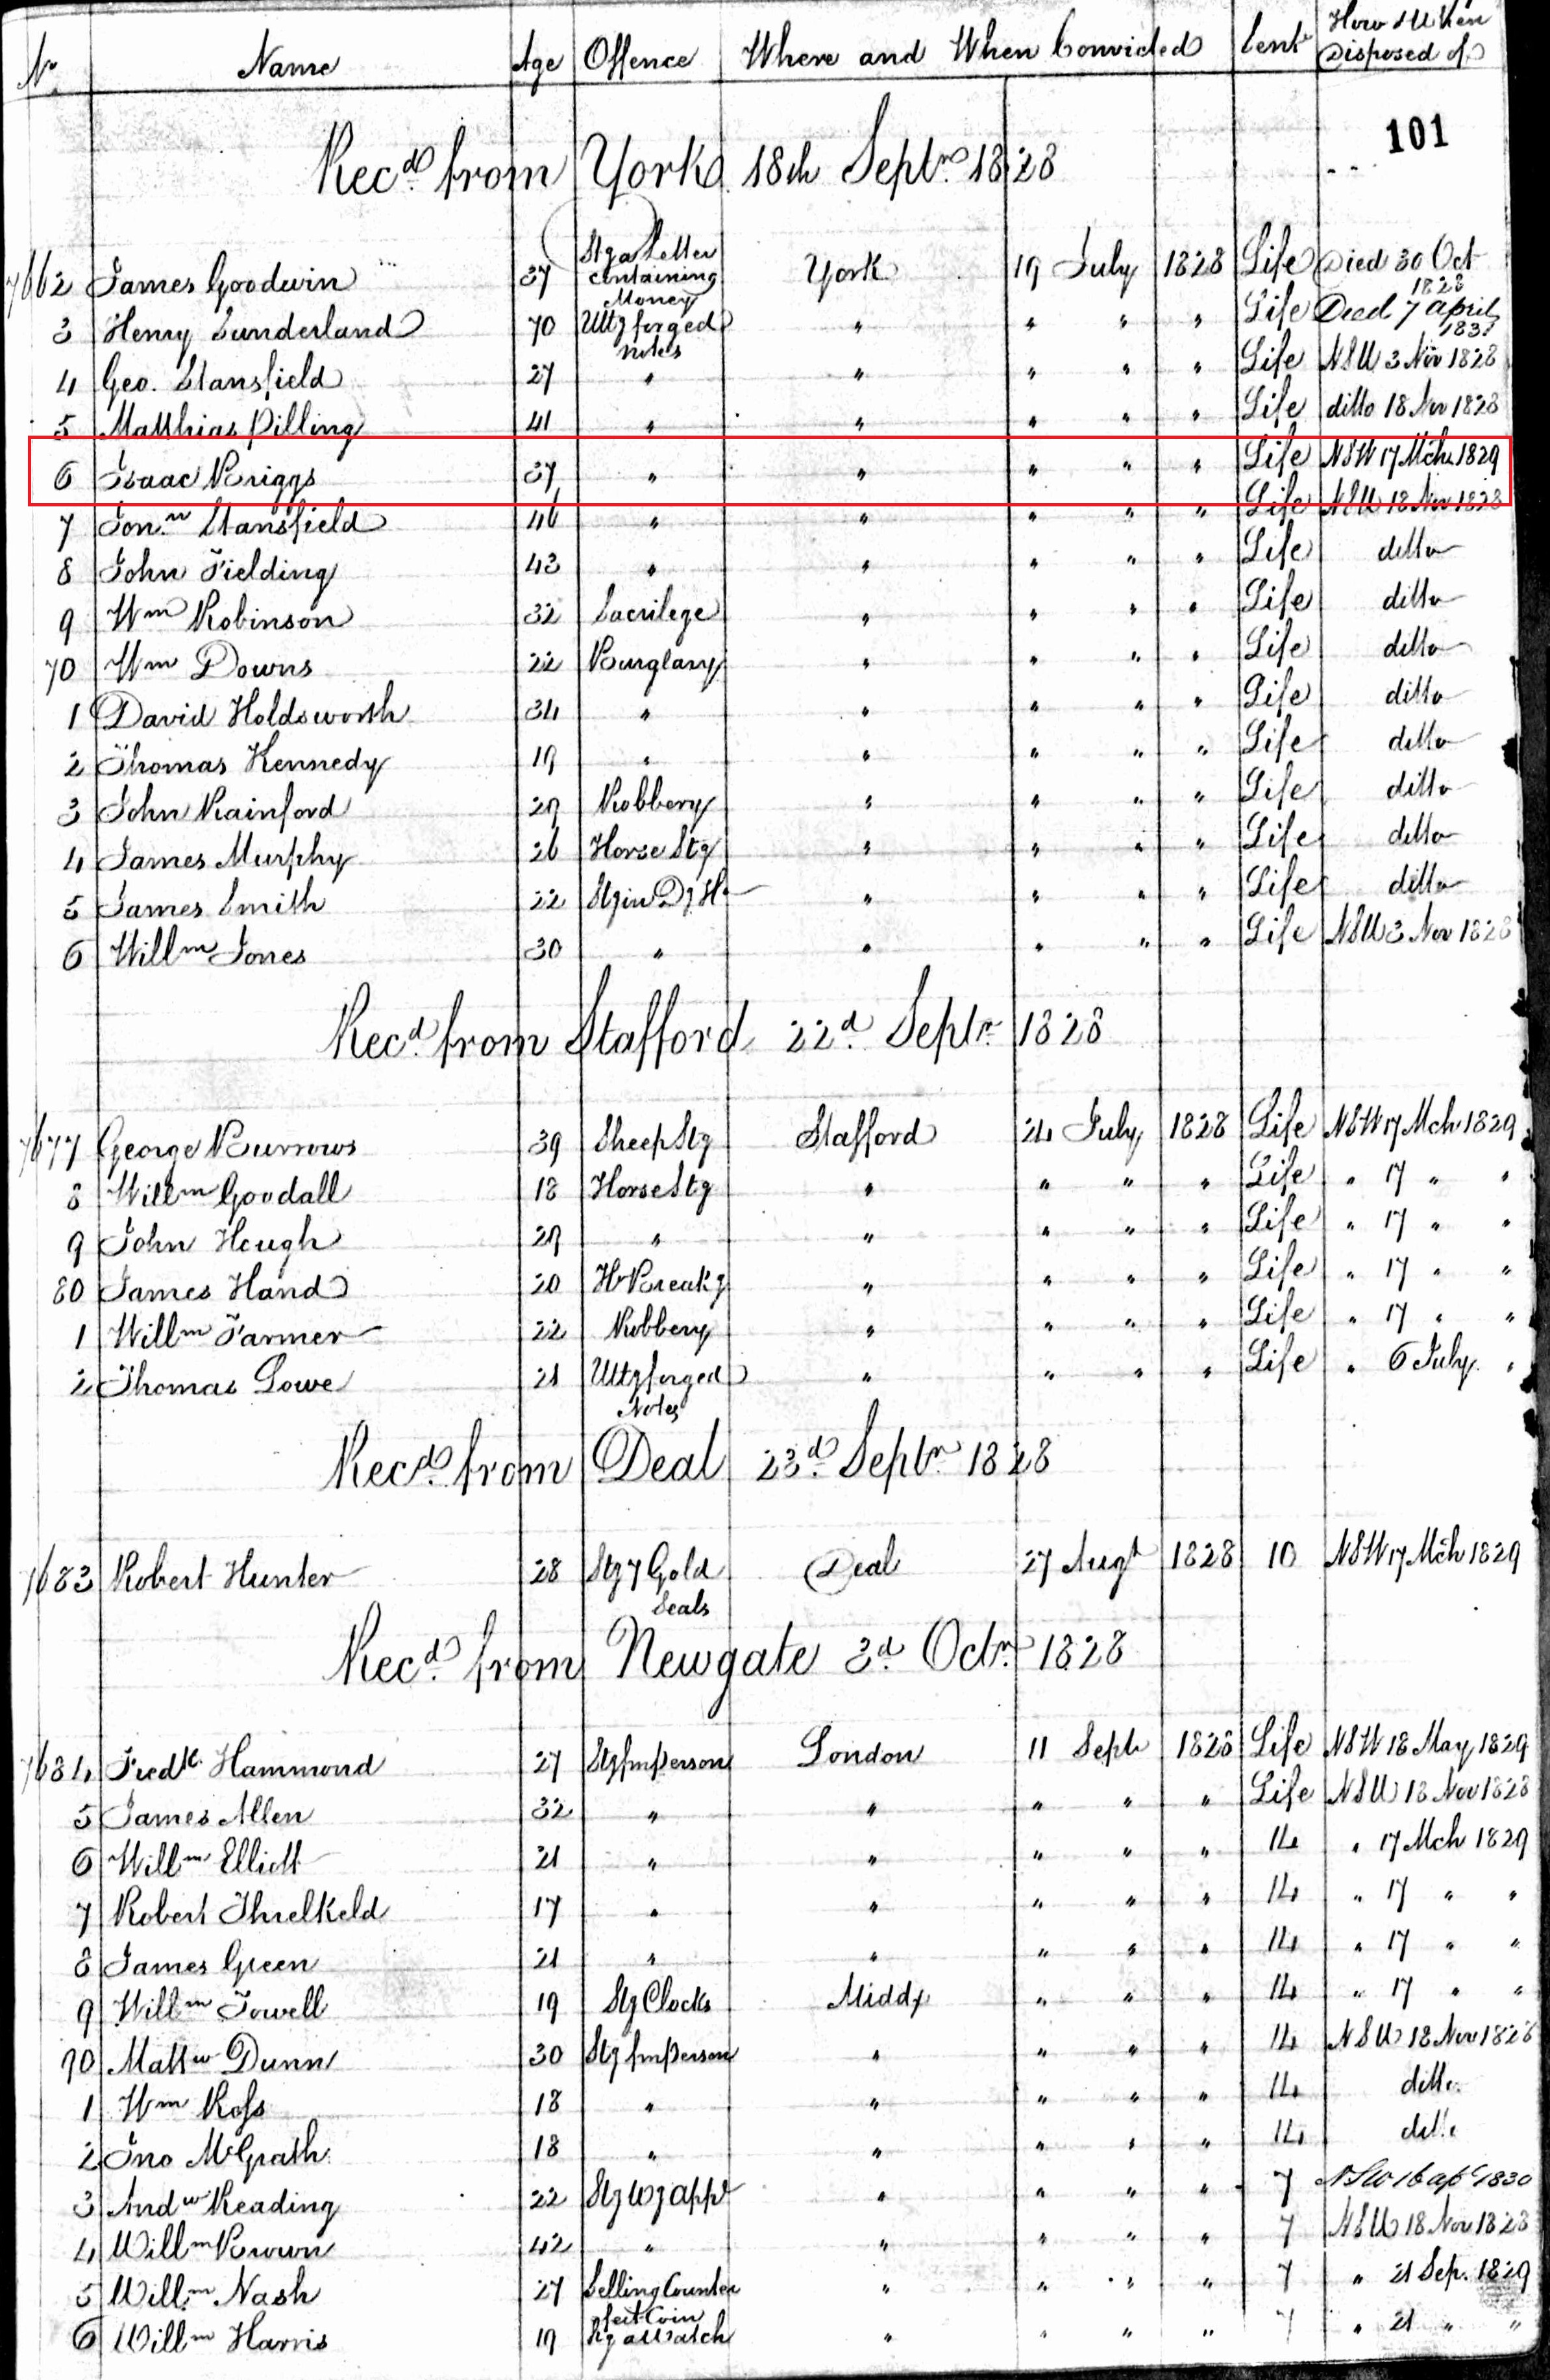 No Name Age Offence Where and When Convicted Sent How & When Disposed of
101
Recd from York 18th Septr 1828
7662 James Goodwin 37 Stg a Letter containing Money York 19 July 1828 Life Died 30 Oct 1828
3 Henry Sunderland 70 Uttg forged notes " " " " Life Died 7 April
4 Geo. Stansfield 27 " " " " " Life NSW 3 Nov 1828
5 Matthias Pilling 41 " " " " " Life ditto 18 Nov 1828
6 Isaac Briggs 37 " " " " " Life NSW 17 Mch 1829
7 Jonn Stansfield 46 " " " " " Life NSW 18 Nov 1828
8 John Fielding 43 " " " " " Life ditto
9 Wm Robinson 32 Sacrilege " " " " Life ditto
70 Wm Downs 22 Burglary " " " " Life ditto
1 David Holdsworth 34 " " " " " Life ditto
2 Thomas Kennedy 19 " " " " " Life ditto
3 John Rainford 29 Robbery " " " " Life ditto
4 James Murphy 26 Horse Stg " " " " Life ditto
5 James Smith 22 Stg in Dg H " " " " Life ditto
6 Willm Jones 30 " " " " " Life NSW 3 Nov 1828
Recd from Stafford 22d Septr 1828
7677 George Burrows 39 Sheep Stg Stafford 24 July 1828 Life NSW 17 Mch 1829
8 Willm Goodall 18 Horse Stg " " " " Life " 17 " "
9 John Hough 29 " " " " " Life " 17 " "
80 James Hand 20 H Breakg " " " " Life " 17 " "
1 Willm Farmer 22 Robbery " " " " Life " 17 " "
2 Thomas Lowe 21 Uttg forged Notes " " " " Life " 6 July "
Recd from Deal 23d Septr 1828
7683 Robert Hunter 28 Stg 7 Gold Seals Deal 27 Augt 1828 10 NSW 17 Mch 1829
Recd from Newgate 3d Octr 1828
7684 Fredk Hammond 27 Stg fm person London 11 Sept 1828 Life NSW 18 May 1829
5 James Allen 32 " " " " " Life NSW 18 Nov 1828
6 Willm Elliott 21 " " " " " 14 " 17 Mch 1829
7 Robert Threlkeld 17 " " " " " 14 " 17 " "
8 James Green 21 " " " " " 14 " 17 " "
9 Willm Towell 19 Stg Clocks Middx " " " 14 " 17 " "
90 Mattw Dunn 30 Stg fm person " " " " 14 NSW 18 Nov 1828
1 Wm Ross 18 " " " " " 14 ditto
2 Jno McGrath 18 " " " " " 14 ditto
3 Andw Reading 22 Stg Wg appl " " " " 7 NSW 16 apl 1830
4 Willm Brown 42 " " " " " 7 NSW 18 Nov 1828
5 Willm Nash 27 Selling Counterfeit Coin " " " " 7 " 21 Sep. 1829
6 Willm Harris 19 Stg a Watch " " " " 7 " 21 " "